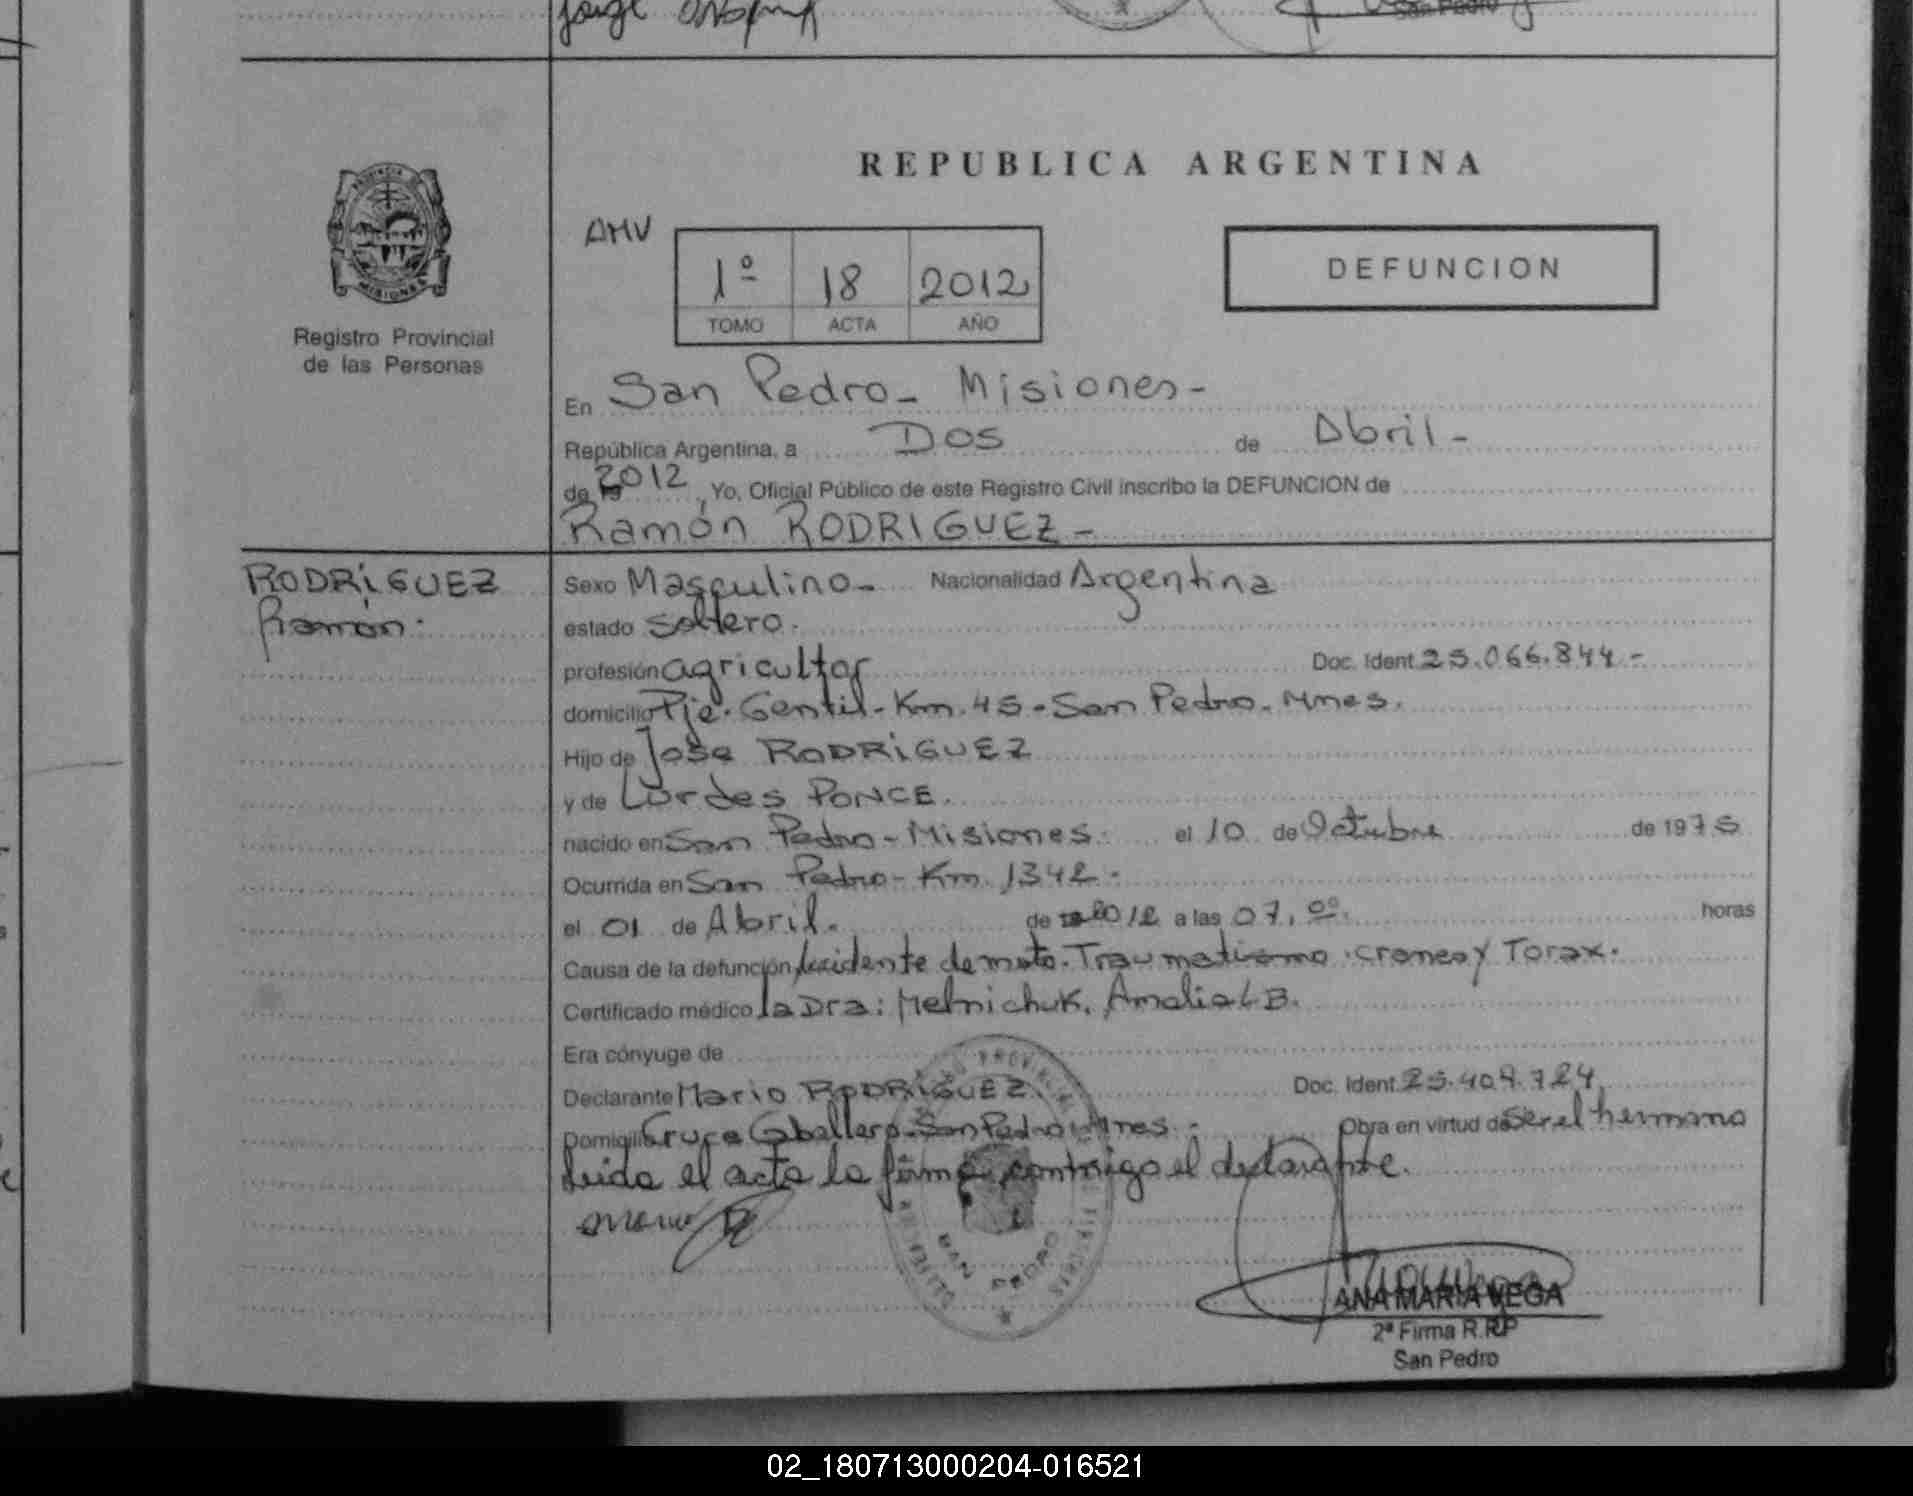 San Pedro
REPUBLICA ARGENTINA
PROVINCIA DE
MISIONES
Registro Provincial
de las Personas
AMV
1º 18 2012
TOMO ACTA AÑO
DEFUNCION
En San Pedro - Misiones -
República Argentina, a Dos de Abril -
de 19 2012, Yo, Oficial Público de este Registro Civil inscribo la DEFUNCION de
Ramón RODRIGUEZ -
RODRÍGUEZ
Ramón.
Sexo Masculino - Nacionalidad Argentina
estado Soltero.
profesión agricultor Doc. Ident. 25.066.844 -
domicilio Pje. Gentil - Km. 45 - San Pedro - Mnes.
Hijo de José RODRÍGUEZ
y de Lurdes PONCE.
nacido en San Pedro - Misiones. el 10 de Octubre de 1975
Ocurrida en San Pedro - Km 1342.
el 01 de Abril. de 2012 a las 07,00. horas
Causa de la defunción Accidente de moto. Traumatismo craneo y Torax.
Certificado médico la Dra: Melnichuk, Amalia L B.
Era cónyuge de
Declarante Mario RODRÍGUEZ. Doc. Ident. 25.409.724
Domicilio Cruce Caballero - San Pedro - Mnes. Obra en virtud de Ser el hermano
Leida el acta la firma conmigo el declarante.
SAN PEDRO
ANA MARIA VEGA
2ª Firma R.R.P
San Pedro
02_180713000204-016521